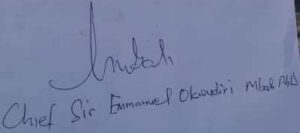 Chief Sir Emmanuel Okwudiri Mbah PhD